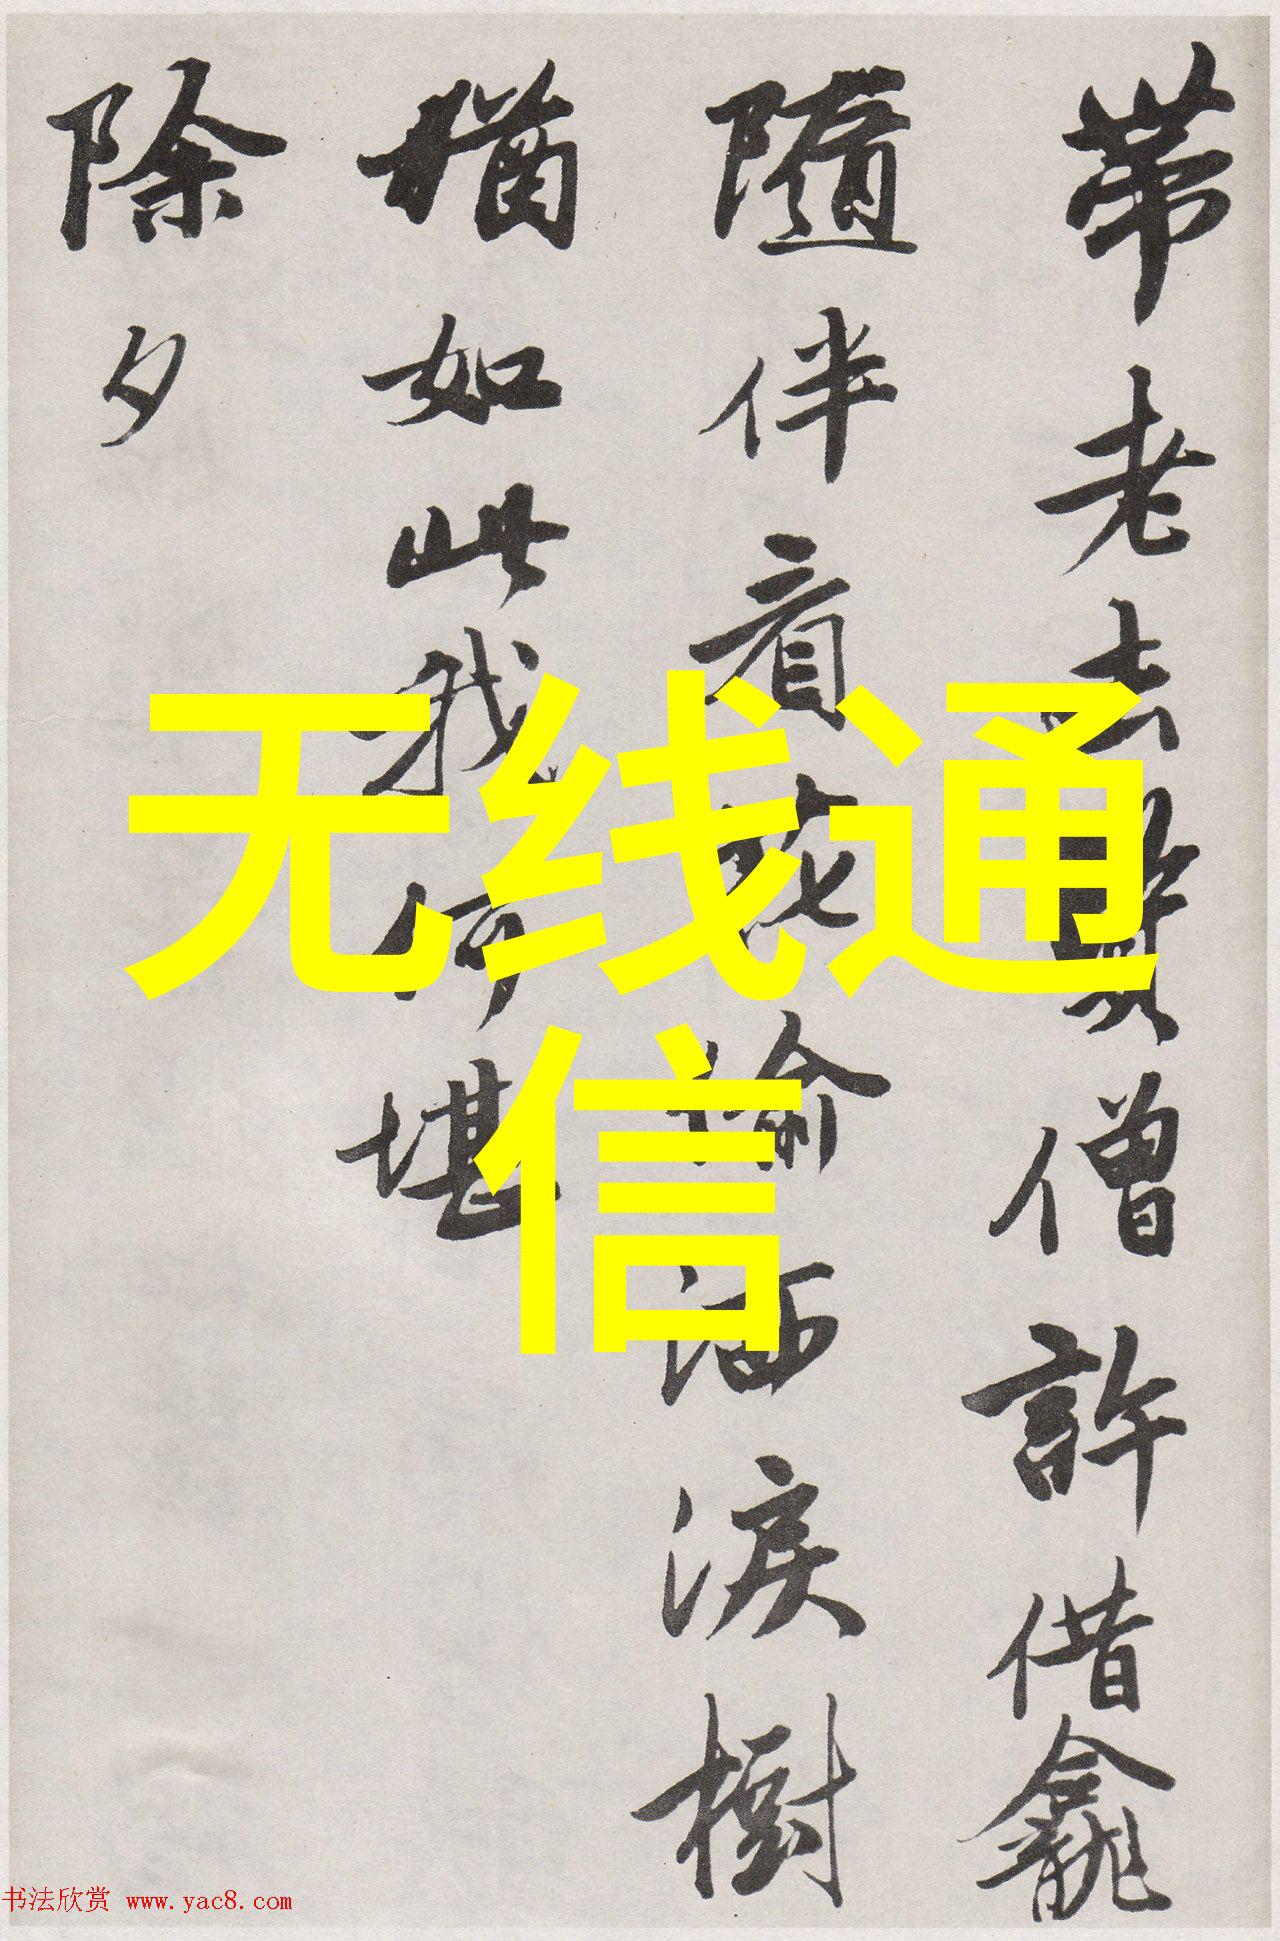 帶老去僧許借龕
隨伴看花偷洒淚樹
猶如此我何堪
除夕
无线通
信
书法欣赏 www.yac8.com